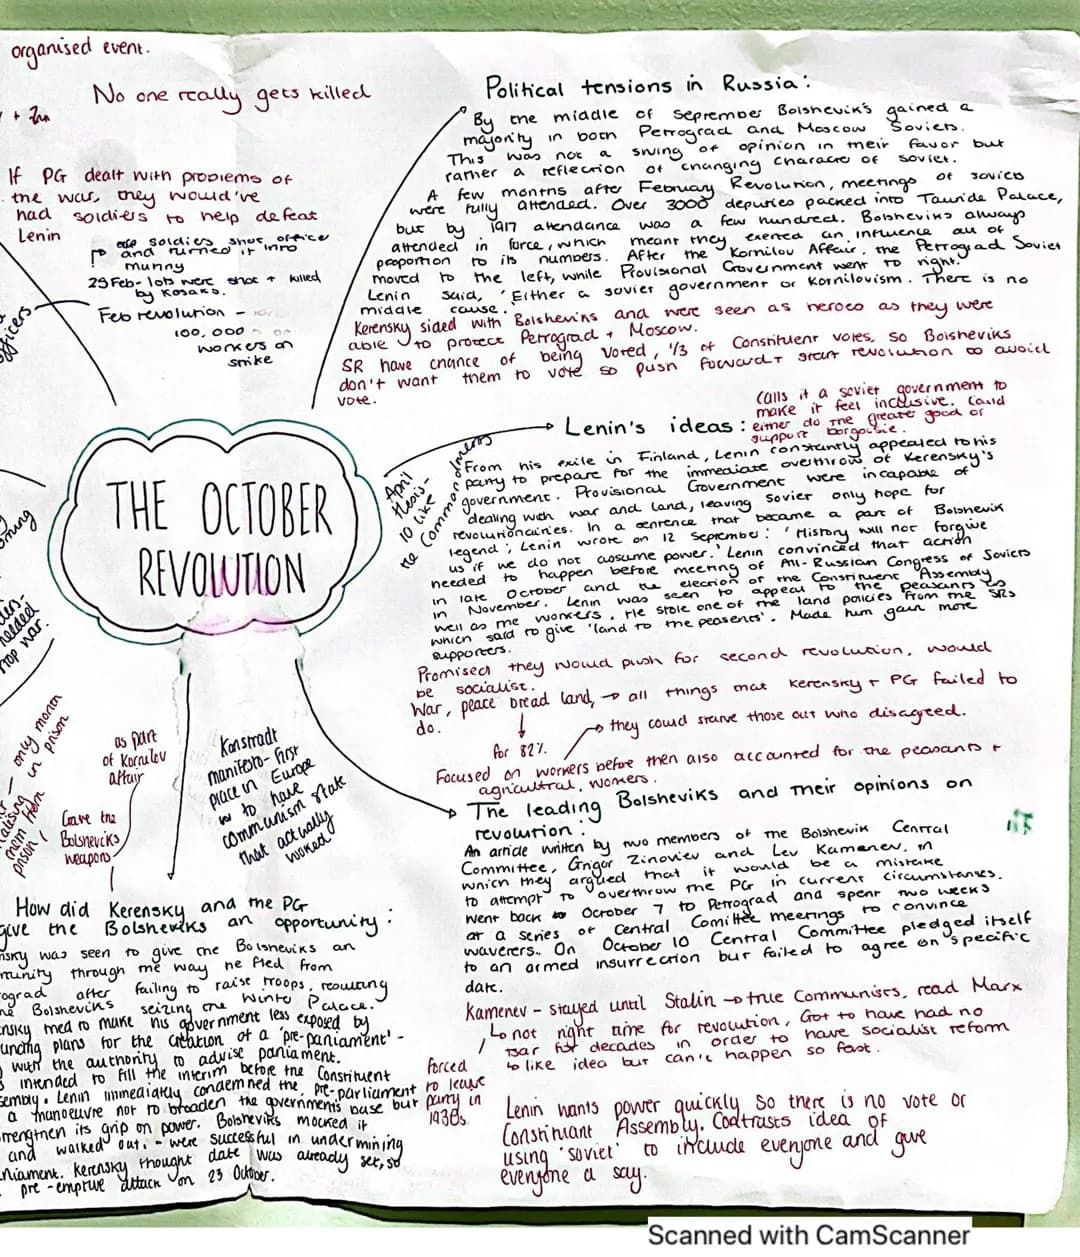 organised event.
No one really gets killed
If PG dealt with problems of
the war, they would've
had soldiers to help defeat
Lenin
soldiers shot office
and turned it into
munny
25 Feb - lots were shot + killed
by Kosaks.
Feb revolution -
100,000
workers on
strike
officers
THE OCTOBER
REVOLUTION
Political tensions in Russia:
By the middle of September Bolsheviks gained a
majority in both Petrograd and Moscow Soviets.
This was not a swing of opinion in their favor but
rather a reflection of changing character of soviet.
A few months after February Revolution, meetings of soviets
were fully attended. Over 3000 deputies packed into Tauride Palace,
but by 1917 attendance was a few hundred. Bolsheviks always
attended in force, which meant they exerted an influence out of
proportion to its numbers. After the Kornilov Affair, the Petrograd Soviet
moved to the left, while Provisional Government went to right.
Lenin said, 'Either a soviet government or Kornilovism. There is no
middle cause.
Kerensky sided with Bolsheviks and were seen as heroes as they were
able to protect Petrograd + Moscow.
SR have chance of being voted, 1/3 of Constituent votes, so Bolsheviks
don't want them to vote so push forward + start revolution to avoid
vote.
Lenin's ideas:
calls it a soviet government to
make it feel inclusive. Could
either do the greate good or
support borgousie.
April
thesis -
10 like
the Commandments
From his exile in Finland, Lenin constantly appealed to his
party to prepare for the immediate overthrow of Kerensky's
government. Provisional Government were incapable of
dealing with war and land, leaving soviet only hope for
revolutionairies. In a sentence that became a part of Bolshevik
legend; Lenin wrote on 12 September: 'History will not forgive
us if we do not assume power.' Lenin convinced that action
needed to happen before meeting of All-Russian Congress of Soviets
in late October and the election of the Constituent Assembly
in November. Lenin was seen to appeal to the peasants as
well as the workers. He stole one of the land policies from the SRs
which said to give 'land to the peasents'. Made him gain more
supporters.
Promised they would push for second revolution, would
be socialist.
War, peace bread land, → all things that Kerensky + PG failed to
do.
→ they could starve those out who disagreed.
for 82%
Focused on workers before then also accounted for the peasants +
agricultral workers.
The leading Bolsheviks and their opinions on
revolution:
An article written by two members of the Bolshevik Central
Committee, Grigor Zinoviev and Lev Kamenev, in
which they argued that it would be a mistake
to attempt to overthrow the PG in current circumstances.
Went back to October 7 to Petrograd and spent two weeks
at a series of Central Comittee meetings to convince
waverers. On October 10 Central Committee pledged itself
to an armed insurrection but failed to agree on specific
date.
Kamenev - stayed until Stalin → true Communists, read Marx
↳ not right time for revolution, Got to have had no
tsar for decades in order to have socialist reform
↳ like idea but can't happen so fast.
forced
to leave
party in
1930s.
Lenin wants power quickly so there is no vote or
Constituant Assembly. Contrasts idea of
using 'soviet' to include everyone and give
everyone a say.
Konstradt
manifesto - first
place in Europe
to have
communism state
that actually
worked
as part
of Kornilev
affair
Gave the
Bolsheviks
weapons
only month
in prison
them from
prison
needed
stop war.
How did Kerensky and the PG
give the Bolsheviks an opportunity:
nsky was seen to give the Bolsheviks an
tunity through the way he fled from
ograd after failing to raise troops, reowing
he Bolsheviks seizing the Winter Palace.
ensky tried to make his government less exposed by
uncing plans for the creation of a 'pre-parliament' -
with the authority to advise parliament.
s intended to fill the interim before the Constituent
sembly. Lenin immediatly condemned the pre-parliament
a manoeuvre not to broaden the governments base but
trengthen its grip on power. Bolsheviks mocked it
and walked out. - were successful in undermining
niament. Kerensky thought date was already set, so
pre-emptive attack on 23 October.
Scanned with CamScanner